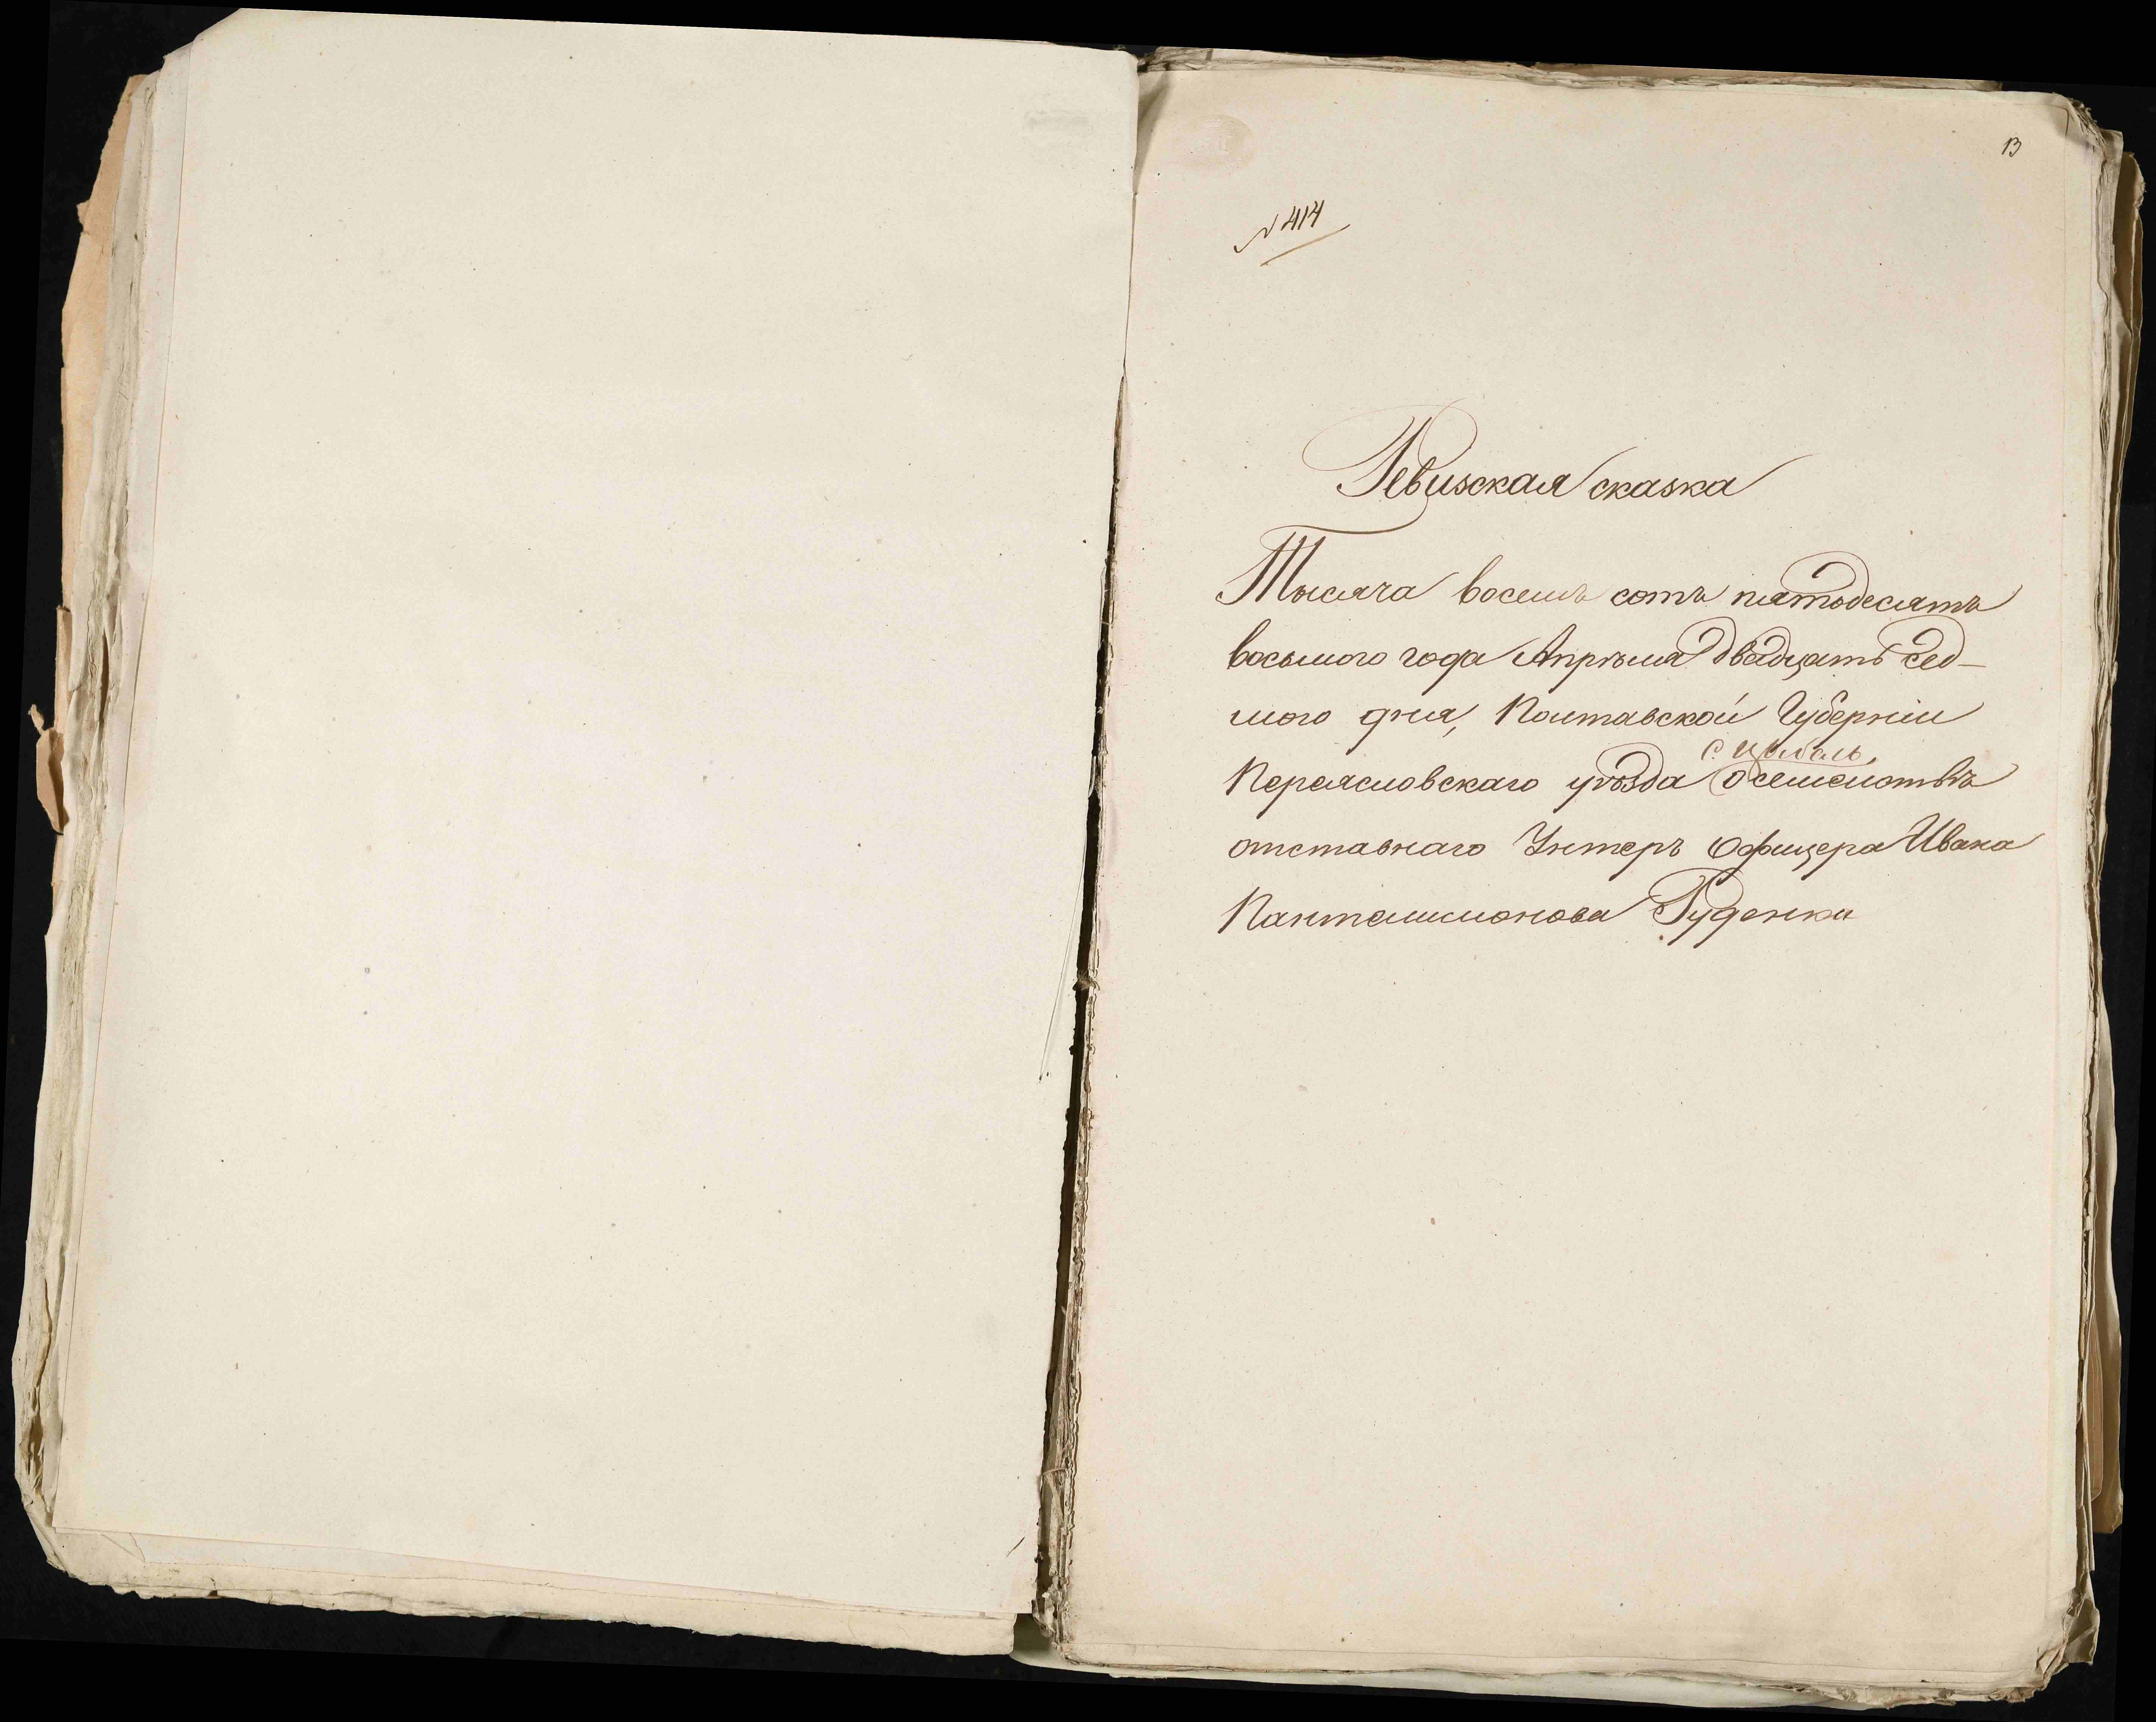 13
№ 414
Ревизская сказка
Тысяча восемь сотъ пятьдесятъ
восьмого года Апрѣля двадцать сед-
мого дня, Полтавской Губерніи
с. Цибель,
Переясловскаго уѣзда о семействѣ
отставнаго Унтеръ Офицера Ивана
Пантелимонова Руденки